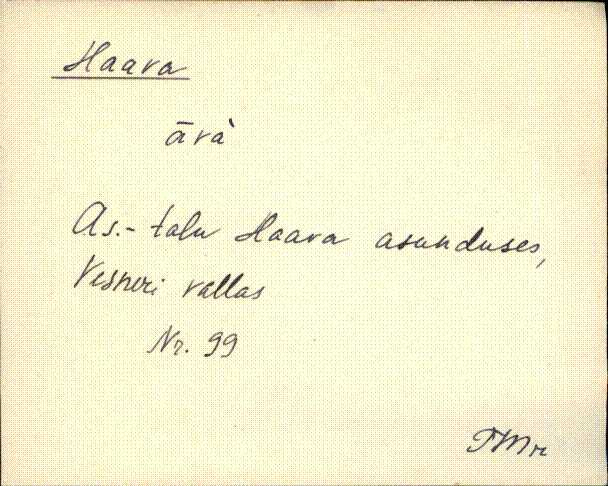 Haava
āvà
As.- talu Haava asunduses,
Vesneri vallas
Nr. 99
TMr